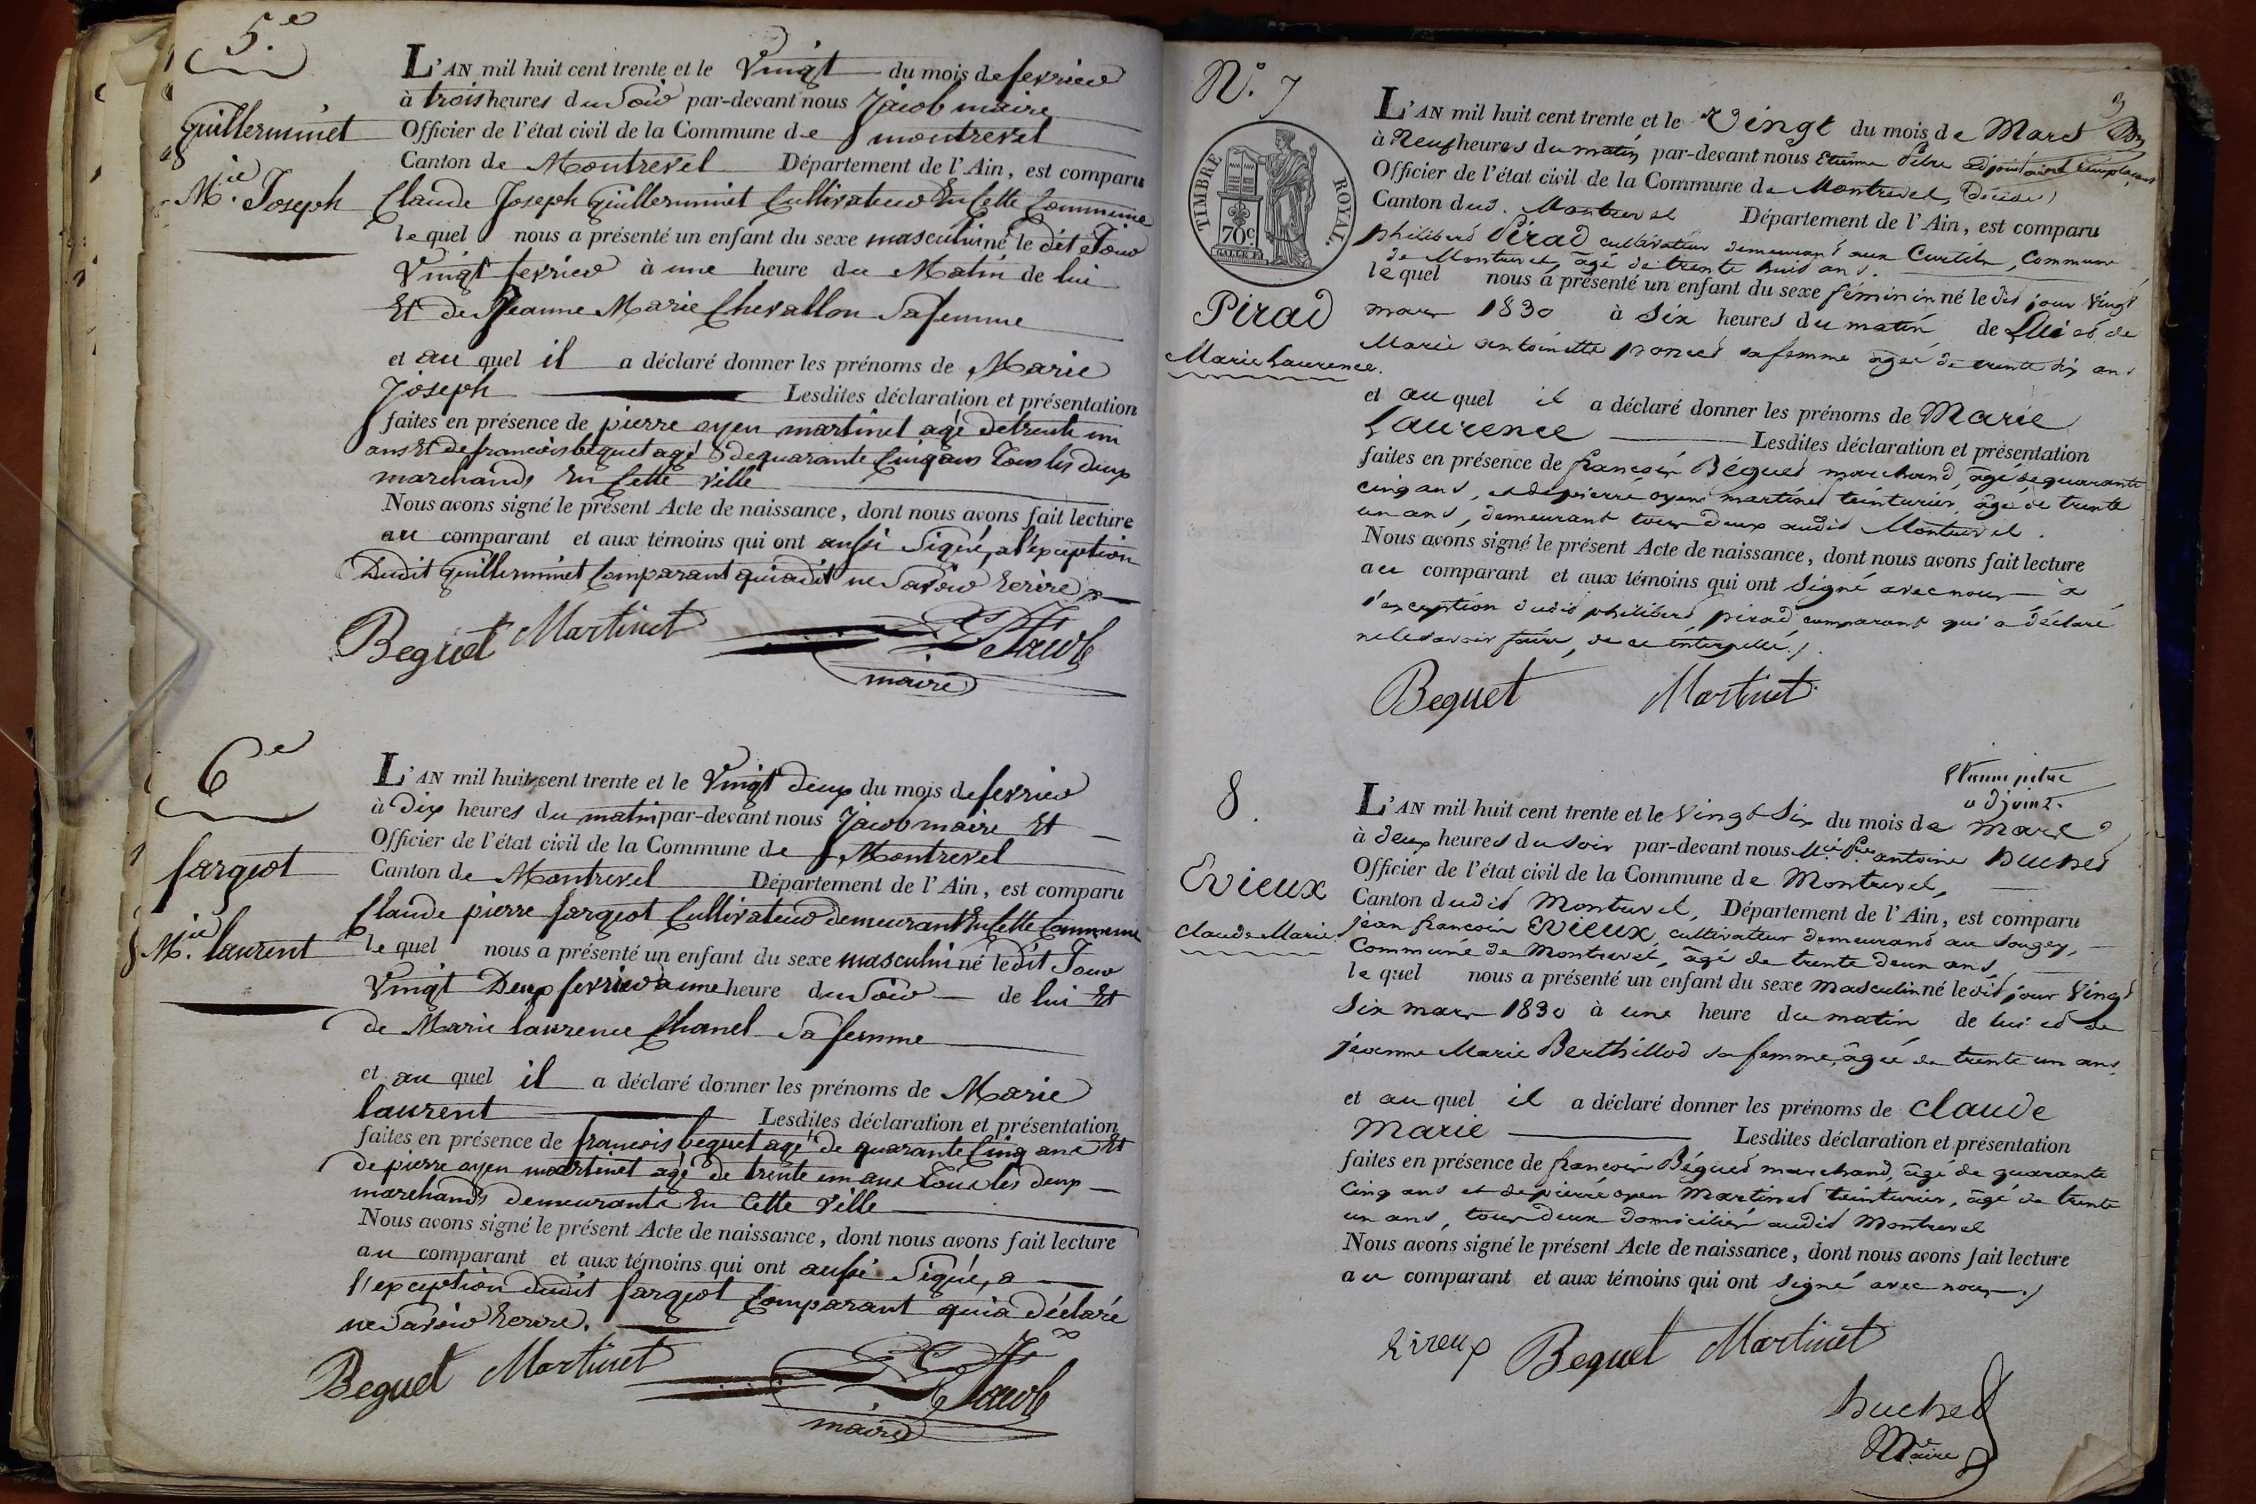 5.e
Guillerminet
M.ie Joseph
L'AN mil huit cent trente et le Vingt du mois de fevrier
à trois heures du Soir par-devant nous Jacob maire
Officier de l'état civil de la Commune de montrevel
Canton de Montrevel Département de l'Ain, est comparu
Claude Joseph Guillerminet Cultivateur En Cette Commune
le quel nous a présenté un enfant du sexe masculin né le dit Jour
Vingt fevrier à une heure du Matin de lui
Et de Jeanne Marie Chevallon Sa femme
et au quel il a déclaré donner les prénoms de Marie
Joseph Lesdites déclaration et présentation
faites en présence de pierre oyen martinet agé de trente un
ans Et de francois béquet agé de quarante Cinq ans Tous les deux
marchands En Cette ville
Nous avons signé le présent Acte de naissance, dont nous avons fait lecture
au comparant et aux témoins qui ont aussi Signé, a l'exception
Dudit Guillerminet Comparant qui a dit ne Savoir Ecrire
Bequet Martinet Jacob
maire
6.e
fargeot
M.ie laurent
L'AN mil huit cent trente et le Vingt deux du mois de fevrier
à Dix heures du matin par-devant nous Jacob maire Et
Officier de l'état civil de la Commune de Montrevel
Canton de Montrevel Département de l'Ain, est comparu
Claude pierre fargeot Cultivateur demeurant En Cette Commune
le quel nous a présenté un enfant du sexe masculin né le dit Jour
Vingt Deux fevrier à une heure du Soir de lui Et
de Marie laurence Chanel Sa femme
et au quel il a déclaré donner les prénoms de Marie
laurent Lesdites déclaration et présentation
faites en présence de francois bequet agé de quarante Cinq ans Et
de pierre oyen martinet agé de trente un ans Tous les deux
marchands demeurants En Cette Ville
Nous avons signé le présent Acte de naissance, dont nous avons fait lecture
au comparant et aux témoins qui ont aussi Signé, a
l'exception dudit fargeot Comparant qui a déclaré
ne Savoir Ecrire.
Bequet Martinet Jacob
maire
3
N.o 7
TIMBRE ROYAL.
70c
Pirad
Marie Laurence.
L'AN mil huit cent trente et le Vingt du mois de Mars
à Neuf heures du matin par-devant nous Etienne Pitre adjoint remplaçant
Officier de l'état civil de la Commune de Montrevel, décédé
Canton dud. Montrevel Département de l'Ain, est comparu
philibert Pirad cultivateur demeurant aux Curtils, Commune
de Montrevel, âgé de trente huit ans.
le quel nous a présenté un enfant du sexe féminin né le dit jour Vingt
mars 1830 à six heures du matin de Lui et de
Marie antoinette poncet sa femme âgée de trente six ans
et au quel il a déclaré donner les prénoms de Marie
Laurence Lesdites déclaration et présentation
faites en présence de françois Béguet marchand, âgé de quarante
cinq ans, et de pierre oyen martinet teinturier, âgé de trente
un ans, demeurant tous deux audit Montrevel.
Nous avons signé le présent Acte de naissance, dont nous avons fait lecture
au comparant et aux témoins qui ont signé avec nous à
l'exception dudit philibert pirad comparant qui a déclaré
ne le savoir faire, de ce interpellé.
Bequet Martinet
Etienne pitre
adjoint.
8.
Evieux
Claude Marie.
L'AN mil huit cent trente et le Vingt Six du mois de mars
à deux heures du soir par-devant nous antoine Buchet
Officier de l'état civil de la Commune de Montrevel,
Canton dudit Montrevel, Département de l'Ain, est comparu
jean françois Evieux cultivateur demeurant au Sougey,
Commune de Montrevel, âgé de trente deux ans,
le quel nous a présenté un enfant du sexe masculin né le dit jour Vingt
Six mars 1830 à une heure du matin de lui et de
jeanne Marie Berthillod sa femme, âgée de trente un ans
et au quel il a déclaré donner les prénoms de Claude
Marie Lesdites déclaration et présentation
faites en présence de françois Béguet marchand, âgé de quarante
Cinq ans et de pierre oyen Martinet teinturier, âgé de trente
un ans, tous deux domiciliés audit Montrevel
Nous avons signé le présent Acte de naissance, dont nous avons fait lecture
au comparant et aux témoins qui ont signé avec nous.
Evieux Bequet Martinet
Buchet
Maire